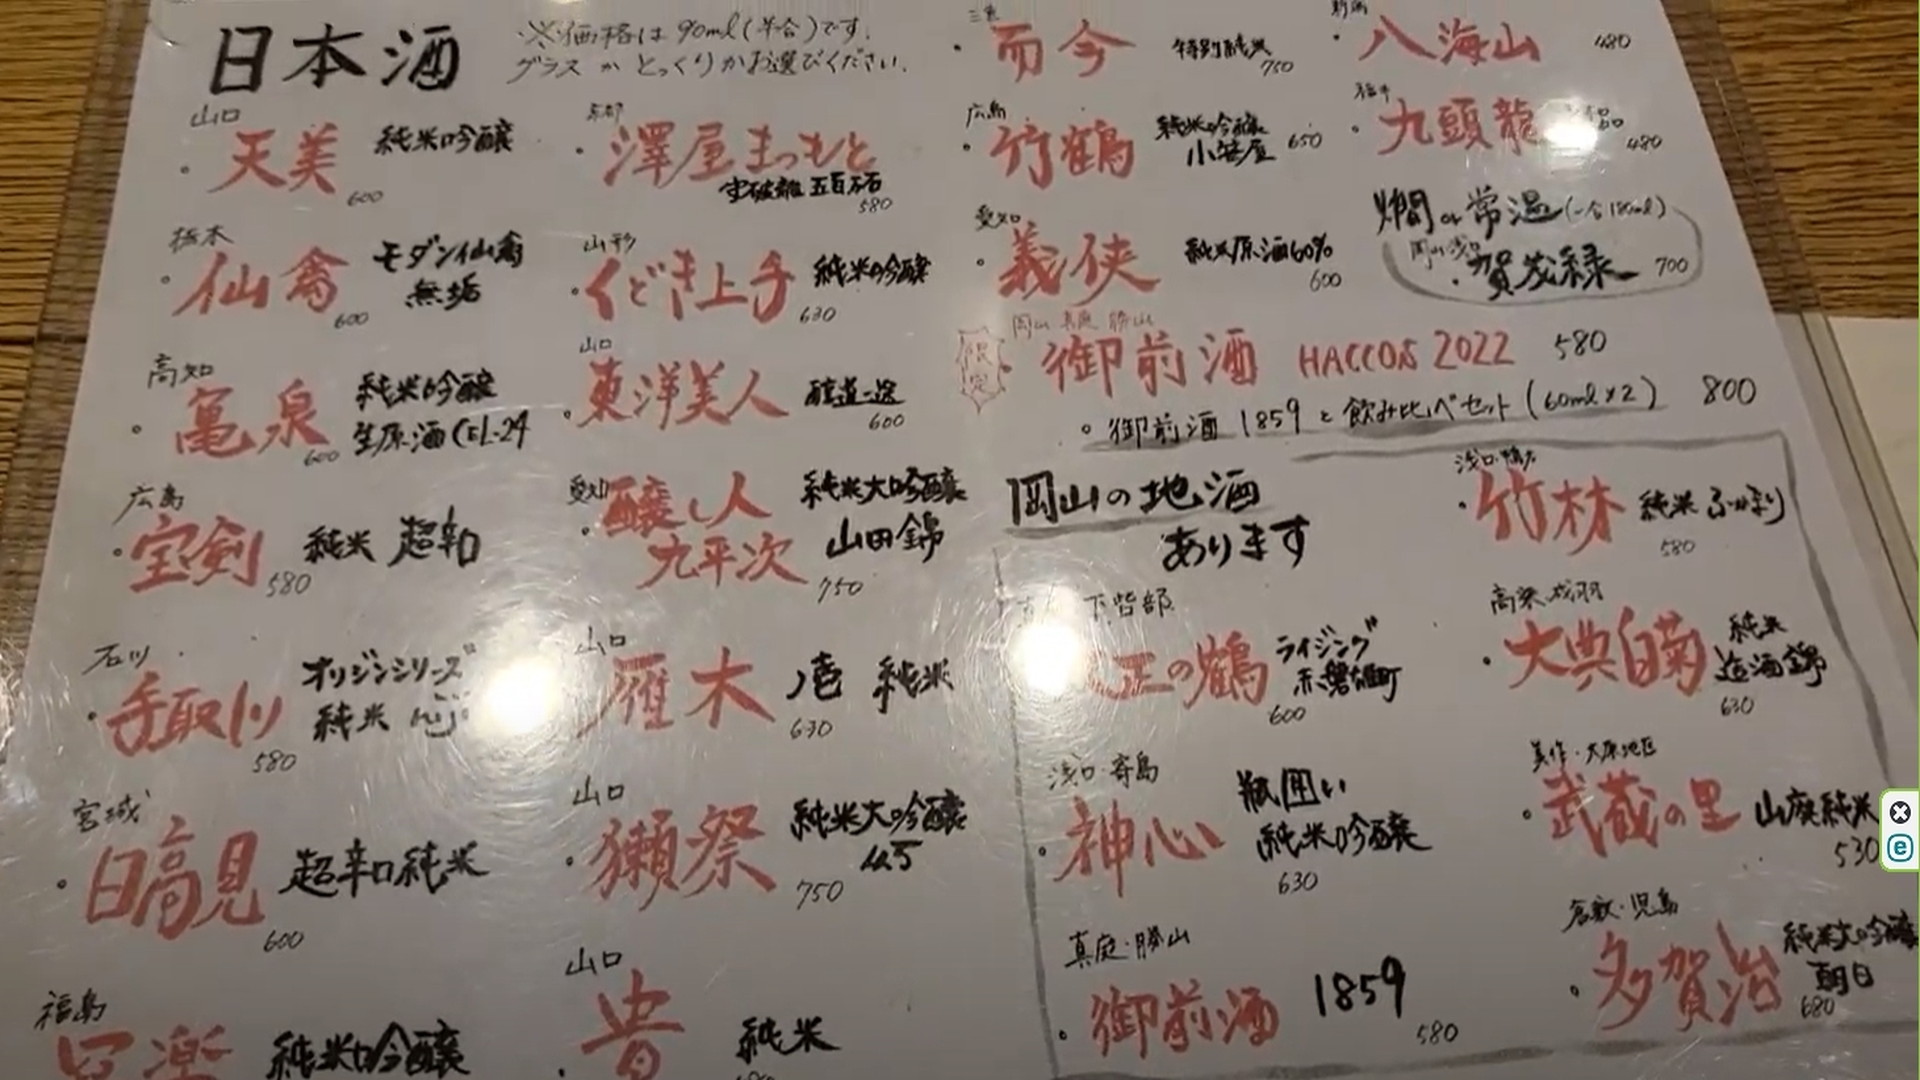 日本酒
※価格は90ml(半合)です。
グラスかとっくりかお選びください。
山口
・天美 純米吟醸
600
栃木
・仙禽 モダン仙禽
無垢
600
高知
・亀泉 純米吟醸
生原酒 CEL-24
600
広島
・宝剣 純米 超辛口
580
石川
・手取川 オリジンシリーズ
純米
580
宮城
・日高見 超辛口純米
600
福島
写楽 純米吟醸
京都
・澤屋まつもと
守破離 五百万石
580
山形
・くどき上手 純米吟醸
630
山口
・東洋美人 醇道一途
600
愛知
・醸し人 純米大吟醸
九平次 山田錦
750
山口
・雁木 ノ壱 純米
630
山口
・獺祭 純米大吟醸
45
750
山口
・貴 純米
三重
・而今 特別純米
750
広島
・竹鶴 純米吟醸
小笹屋 650
愛知
・義侠 純米原酒60%
600
新潟
・八海山 480
福井
・九頭龍
480
燗 or 常温 (一合180ml)
岡山 浅口
・賀茂緑 700
限定
岡山 真庭 勝山
・御前酒 HACCOS 2022 580
・御前酒 1859 と飲み比べセット (60ml×2) 800
岡山の地酒
あります
下呰部
正の鶴 ライジング
赤磐雄町
600
浅口・寄島
・神心 瓶囲い
純米吟醸
630
真庭・勝山
・御前酒 1859
580
浅口・鴨方
・竹林 純米 ふかまり
580
高梁 成羽
・大典白菊 純米
造酒錦
630
美作・大原地区
・武蔵の里 山廃純米
530
倉敷・児島
・多賀治 純米大吟醸
朝日
680